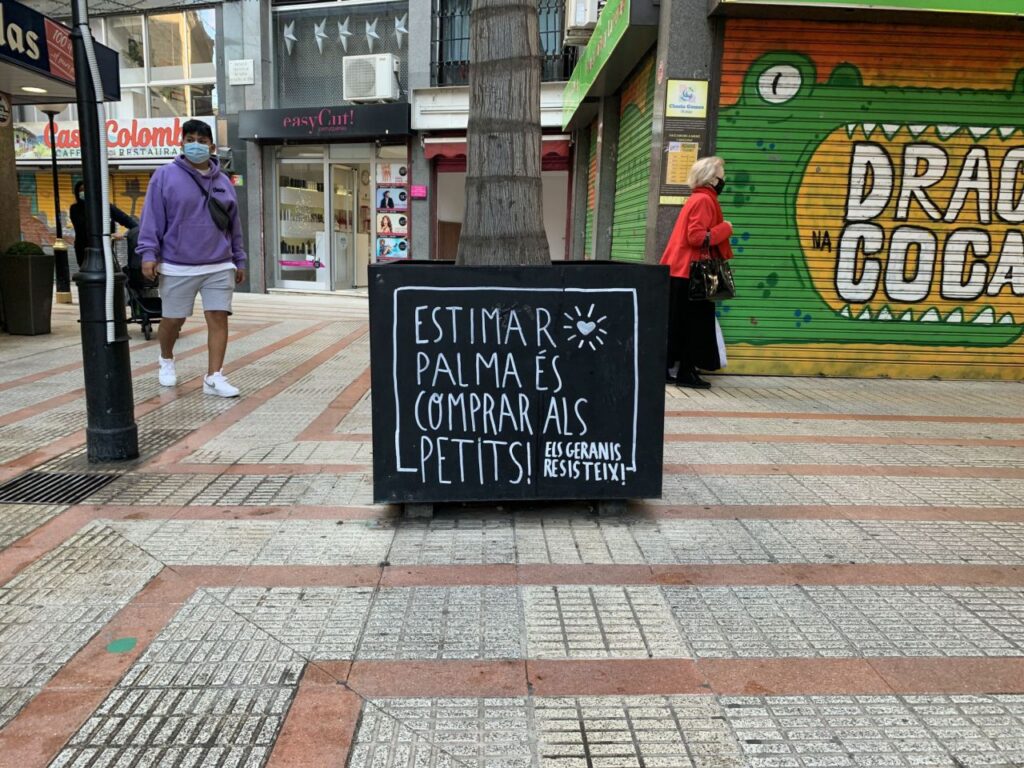 las
100%
Casa Colomb
CAFE
RESTAURA
easyCut!
peluquerías
ESTIMAR
PALMA ÉS
COMPRAR ALS
PETITS!
ELS GERANIS
RESISTEIX!
DRAC
NA
COCA